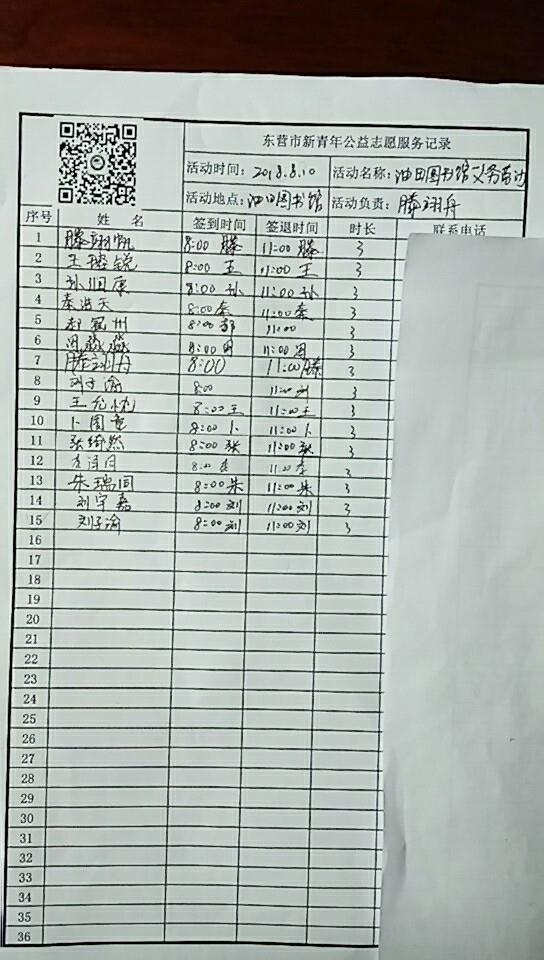 东营市新青年公益志愿服务记录
活动时间：2018.8.10 活动名称：油田图书馆义务劳动
活动地点：油田图书馆 活动负责：滕翊舟
序号 姓 名 签到时间 签退时间 时长 联系电话
1 滕翊帆 8:00 滕 11:00 滕 3
2 王 锐 8:00 王 11:00 王 3
3 孙 康 8:00 孙 11:00 孙 3
4 秦浩天 8:00 秦 11:00 秦 3
5 郝冠州 8:00 郝 11:00 3
6 周淼淼 8:00 周 11:00 周 3
7 滕翊舟 8:00 11:00 滕 3
8 刘子渝 8:00 11:00 刘 3
9 王允 8:00 王 11:00 王 3
10 卜 8:00 卜 11:00 卜 3
11 张绮然 8:00 张 11:00 张 3
12 8:00 11:00 3
13 朱瑞同 8:00 朱 11:00 朱 3
14 刘宇嘉 8:00 刘 11:00 刘 3
15 刘子渝 8:00 刘 11:00 刘 3
16
17
18
19
20
21
22
23
24
25
26
27
28
29
30
31
32
33
34
35
36